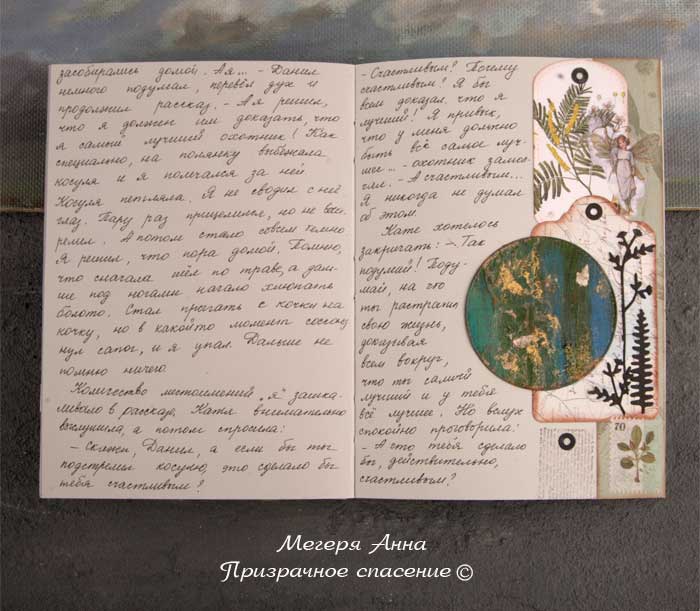 засобирались домой. А я... - Данил
немного подумал, перевёл дух и
продолжил рассказ. - А я решил,
что я должен им доказать, что
я самый лучший охотник! Как
специально, на полянку выбежала
косуля и я помчался за ней.
Косуля петляла. Я не сводил с неё
глаз. Пару раз прицелился, но не выст-
релил. А потом стало совсем темно
Я решил, что пора домой. Помню,
что сначала шёл по траве, а даль-
ше под ногами начало хлюпать
болото. Стал прыгать с кочки на
кочку, но в какой-то момент соскольз
нул сапог, и я упал. Дальше не
помню ничего.
Количество местоимений „я" зашка-
ливало в рассказе. Катя внимательно
выслушала, а потом спросила:
- Скажи, Данил, а если бы ты
подстрелил косулю, это сделало бы
тебя счастливым?
- Счастливым? Почему
счастливым? Я бы
всем доказал, что я
лучший! Я привык,
что у меня должно
быть всё самое луч-
шее... - охотник заме-
тил. - А счастливым...
Я никогда не думал
об этом.
Кате хотелось
закричать: - Так
подумай! Поду-
май, на что
ты растратил
свою жизнь,
доказывая
всем вокруг,
что ты самый
лучший и у тебя
всё лучшее. Но вслух
спокойно проговорила:
- А это тебя сделало
бы, действительно,
счастливым?
70
Мегеря Анна
Призрачное спасение ©